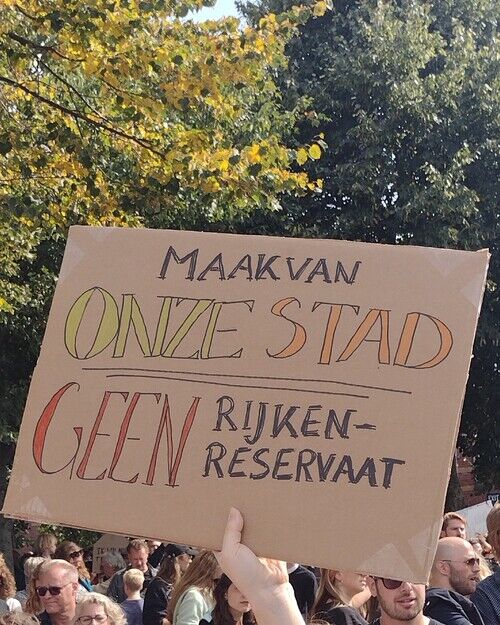 MAAK VAN
ONZE STAD
GEEN RIJKEN-
RESERVAAT